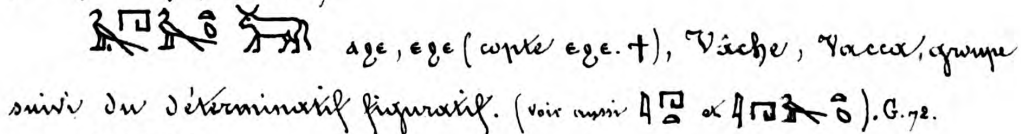 ⲁϩⲉ, ⲉϩⲉ (copte ⲉϩⲉ. †), Vâche, Vacca, groupe
suivi du déterminatif figuratif. (voir aussi et ). G. 72.